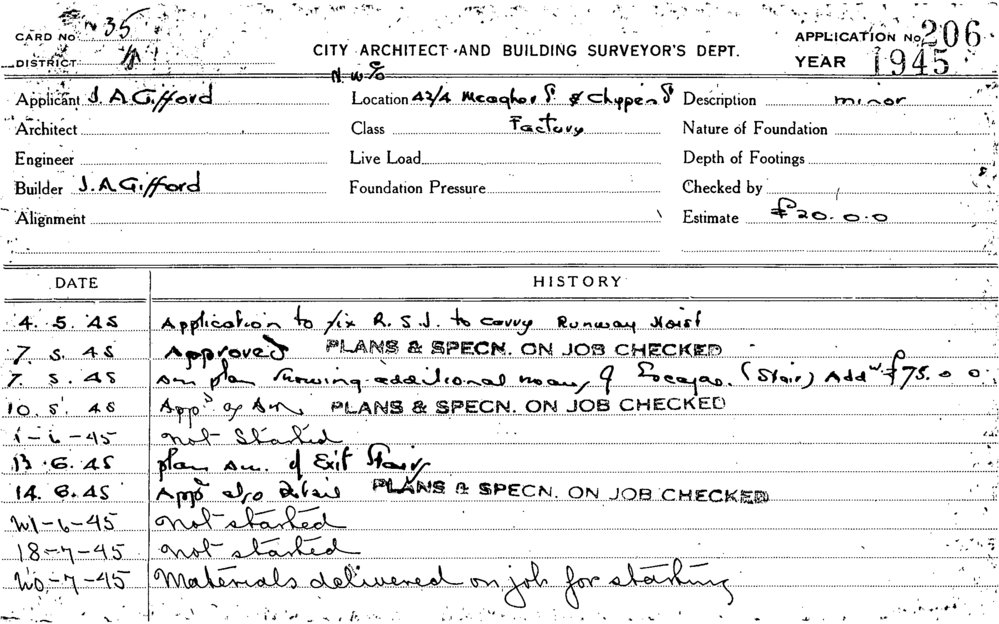 CARD No 35
DISTRICT
CITY ARCHITECT AND BUILDING SURVEYOR'S DEPT.
APPLICATION No 206
YEAR 1945
N.W. c/o
Applicant J. A Gifford
Location 42/4 Meagher St & Chippen St
Description minor
Architect
Class Factory
Nature of Foundation
Engineer
Live Load
Depth of Footings
Builder J. A Gifford
Foundation Pressure
Checked by
Alignment
Estimate £20.0.0
DATE HISTORY
4. 5. 45 Application to fix R.S.J. to carry Runway Hoist
7. 5. 45 Approved PLANS & SPECN. ON JOB CHECKED
7. 5. 45 am plan showing additional means of (Stair) Add £75.0 0
10. 5. 45 Appd as Am PLANS & SPECN. ON JOB CHECKED
1-6-45 not Started
13. 6. 45 plan am. of Exit Stairs
14. 6. 45 Appd Detail PLANS & SPECN. ON JOB CHECKED
21-6-45 not started
18-7-45 not started
20-7-45 Materials delivered on job for starting